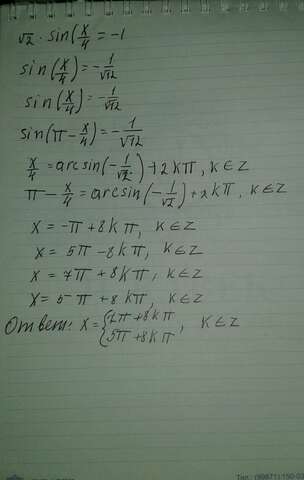 √2 · sin(x/4) = -1
sin(x/4) = -1/√12
sin(x/4) = -1/√12
sin(π - x/4) = -1/√12
x/4 = arcsin(-1/√2) + 2kπ, k∈Z
π - x/4 = arcsin(-1/√2) + 2kπ, k∈Z
x = -π + 8kπ, k∈Z
x = 5π - 8kπ, k∈Z
x = 7π + 8kπ, k∈Z
x = 5π + 8kπ, k∈Z
Ответ: x = {7π + 8kπ, k∈Z
5π + 8kπ